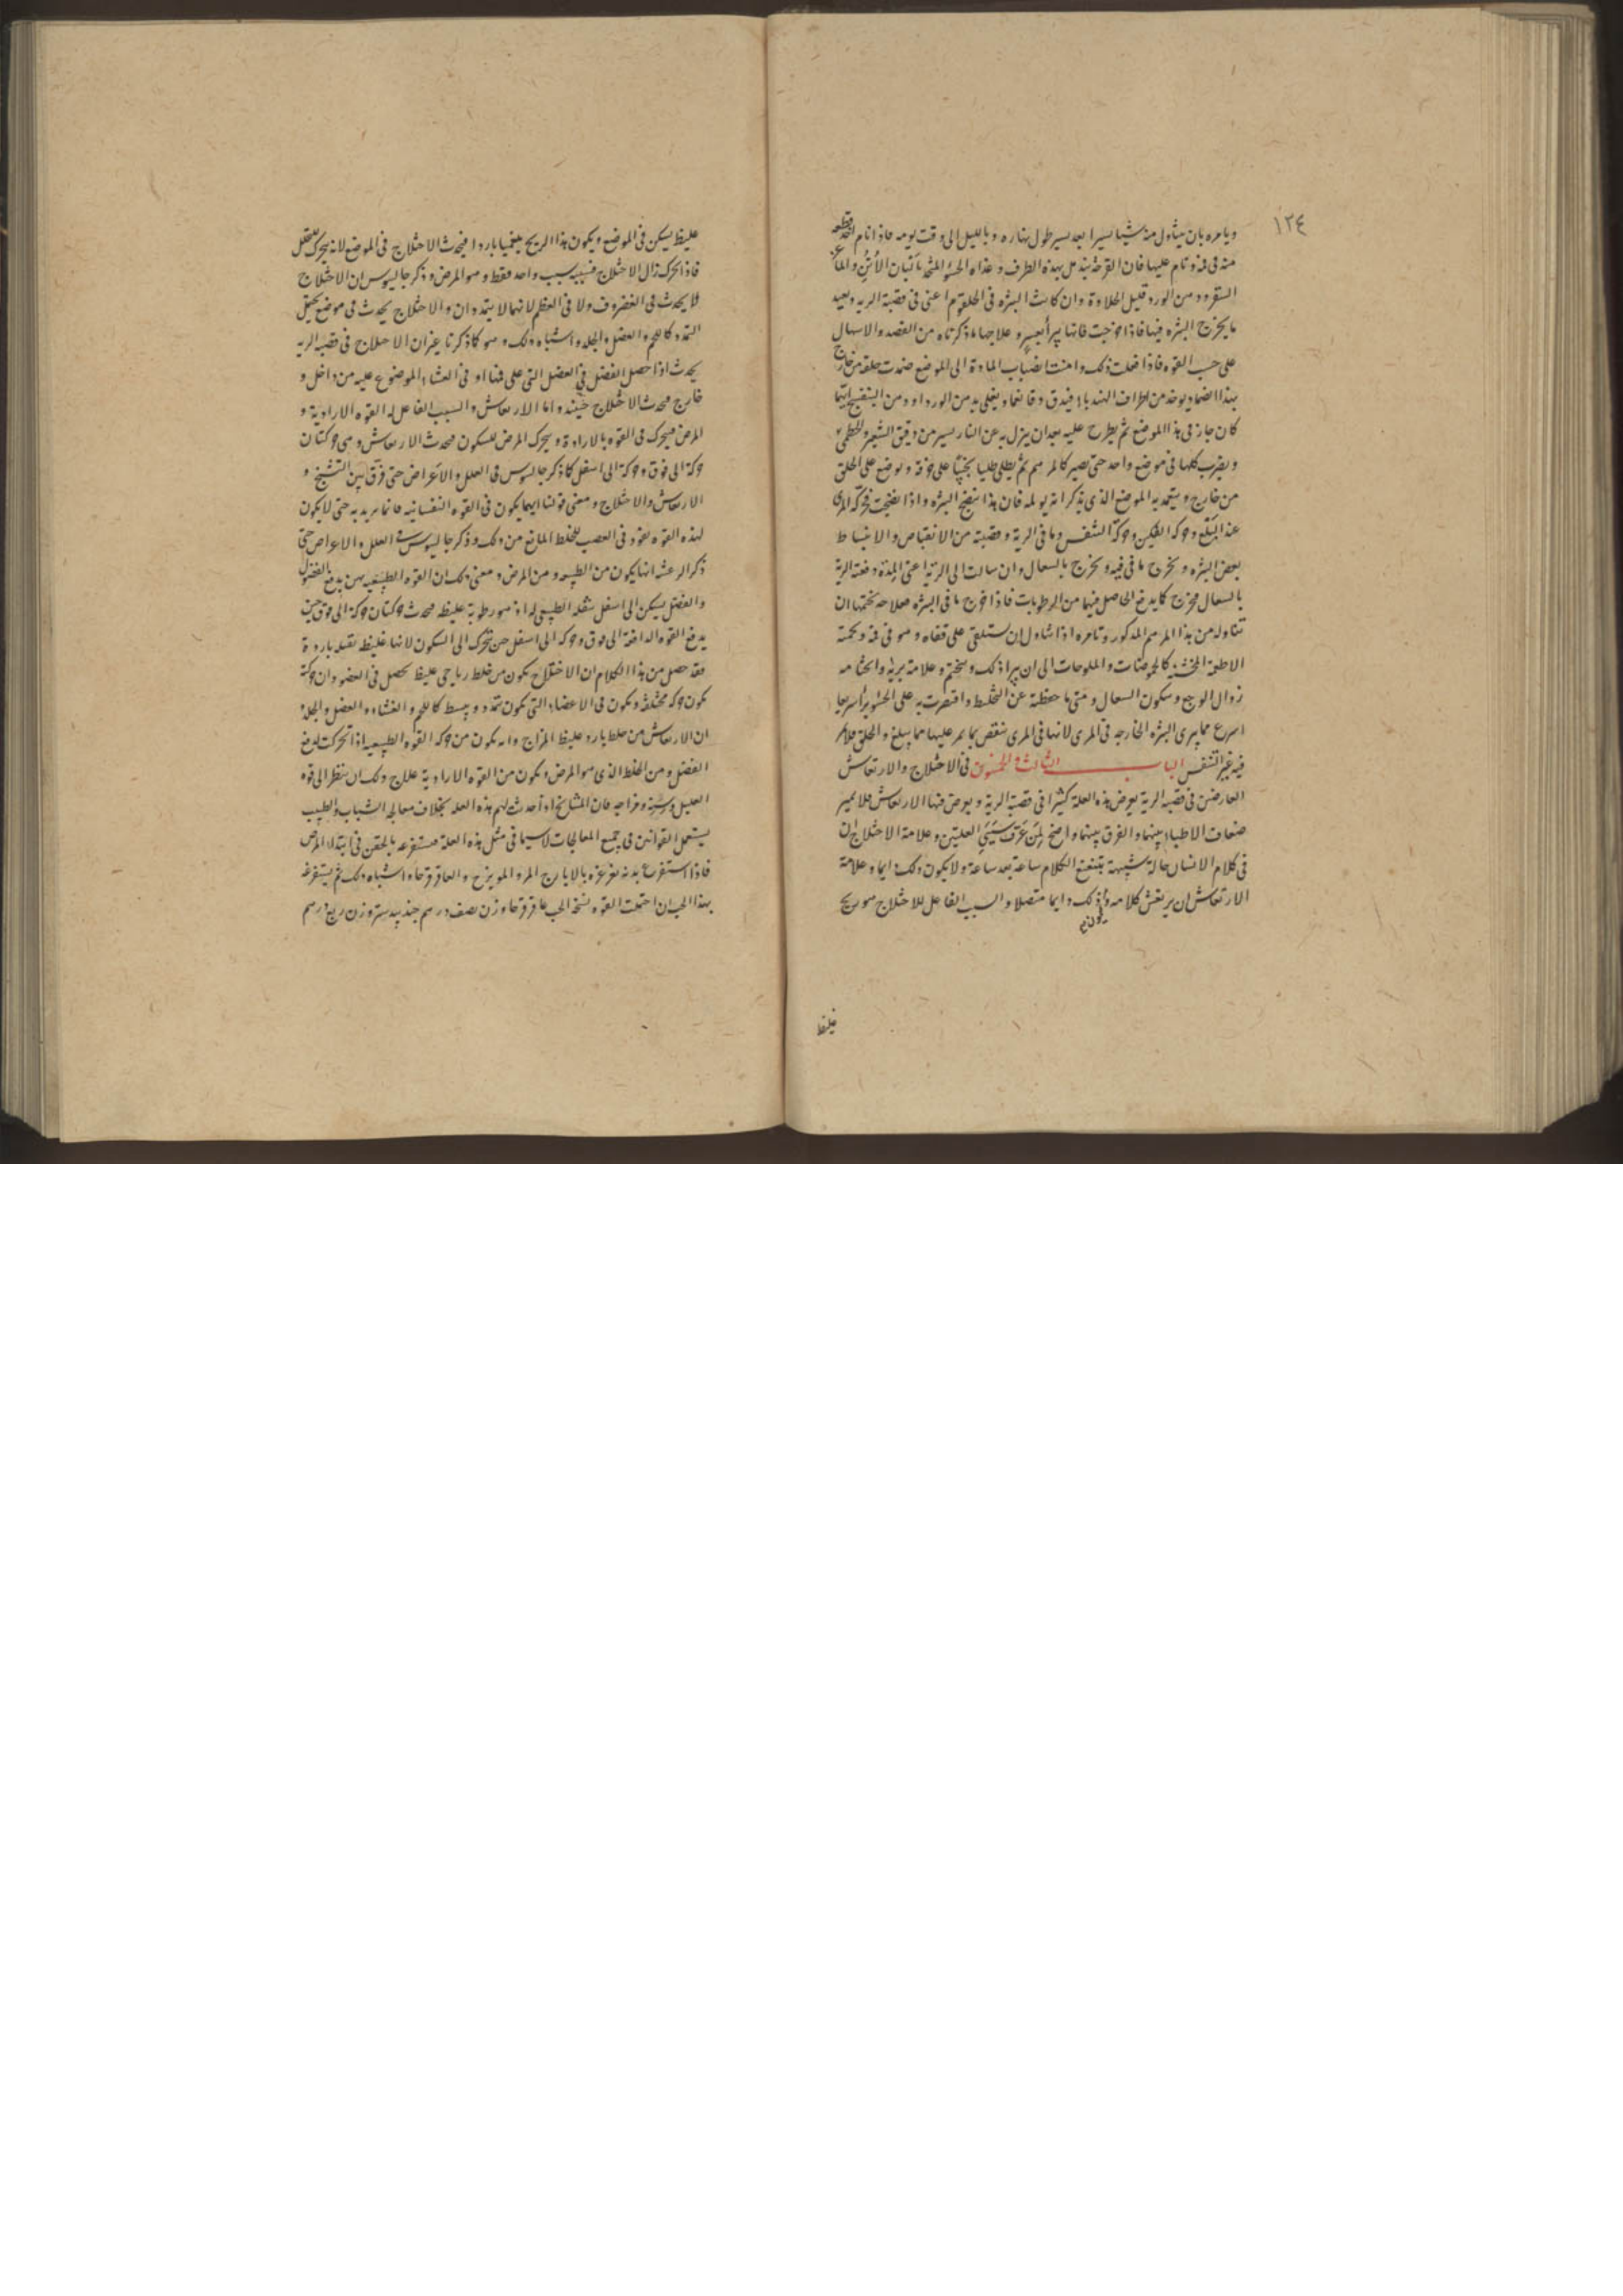 ١٢٤
ويامره بان يتناول منه شيا يسيرا بعد يسير طول نهاره وبالليل الى وقت نومه فاذا نام اخذ قطعه
منه فى فمه ونام عليها فان القرحة تندمل بهذه الطرف وغذاه الحسو المتخذ بالبان الأتن والماعز
من الورد قليل الحلاوة وان كانت البثره فى الحلقوم اعنى فى قصبة الريه وبعيد
ما يخرج البثره فيها فاذا خرجت فانها يبرأ بعسر وعلاجها ما ذكرناه من الفصد والاسهال
على حسب القوه فاذا فعلت ذلك وامنت انصباب المادة الى الموضع ضمدت حلقه من خارج
بهذا الضماد يوخذ من اطراف الهندبا فيدق دقا ناعما ويغلى بدهن الورد او دهن البنفسج ايهما
كان جاز فى هذا الموضع ثم يطرح عليه بعد ان ينزل به عن النار يسير من دقيق الشعير والخطمى
ويضرب كلها فى موضع واحد حتى يصير كالمرهم ثم يطلى طليا على خرقة ويوضع على الحلق
من خارج ويتعمد به الموضع الذى يذكر انه يولمه فان هذا ينضج البثره واذا نضجت فحركة المرى
عند البلع وحركة الفكين وحركة التنفس وما فى الرية وقصبته من الانقباض والانبساط
بعض البثره ويخرج ما فى فيه ويخرج بالسعال وان سالت الى الرية اعنى المدة دفعته الرية
بالسعال فيخرج كما يدفع الحاصل فيها من الرطوبات فاذا خرج ما فى البثره فعلاجه بختمها ان
تتناوله من هذا المرهم المذكور وتامره اذا تناول ان يستلقى على قفاه وهو فى فمه وتحميه
الاطعمة الخشنة كالحموضات والملوحات الى ان يبرا ذلك ويختم وعلامة بريه والختامه
زوال الوجع وسكون السعال ومتى ما حفظته عن التخليط واقتصرت به على الحسو برا سريعا
اسرع مما يبرى البثره الخارجه فى المرى لانها فى المرى تنغص بما يمر عليها مما يبلع والحلق فلا يمر
فيه غير التنفس الباب الثالث والخمسون فى الاختلاج والارتعاش
العارضين فى قصبة الرية يعرض هذه العلة كثيرا فى قصبة الرية ويعرض فيها الارتعاش فلا يميز
ضعاف الاطباء بينهما والفرق بينهما واضح لمن عرف سببى العلتين وعلامة الاختلاج ان
فى كلام الانسان حالة شبيهة بتتعتع الكلام ساعة بعد ساعة ولا يكون ذلك دايما وعلامة
الارتعاش ان يرتعش كلامه ويكون ذلك دايما متصلا والسبب الفاعل للاختلاج هو ريح
غليظ
غليظ يسكن فى الموضع ويكون هذا الريح بلغميا باردا فيحدث الاختلاج فى الموضع لانه يتحرك
فاذا تحرك زال الاختلاج فسببه سبب واحد فقط وهو المرض وذكر جالينوس ان الاختلاج
لا يحدث فى الغضروف ولا فى العظم لانهما لا يتمددان والاختلاج يحدث فى موضع يحتمل
التمدد كاللحم والعضل والجلد واشباه ذلك وهو كما ذكرنا غير ان الاختلاج فى قصبة الريه
يحدث اذا حصل الفضل فى العضل التى على فناها او فى الغشاء الموضوع عليه من داخل و
خارج فيحدث الاختلاج حينئذ واما الارتعاش والسبب الفاعل له القوه الارادية و
المرض فيحرك فى القوه بالارادة ويحرك المرض للسكون فيحدث الارتعاش وهى حركتان
حركة الى فوق وحركة الى اسفل كما ذكر جالينوس فى العلل والاعراض حتى فرق بين التشنج و
الارتعاش والاختلاج ومعنى قولنا انهما يكون فى القوه النفسانيه فانما يريد به حتى لا يكون
لهذه القوه نفوذ فى العصب للخلط المانع من ذلك وذكر جالينوس فى العلل والاعراض حتى
ذكر الرعشه انها يكون من الطبيعه ومن المرض ومعنى ذلك ان القوه الطبيعيه يهمن يدفع الفضول
والفضل يسكن الى اسفل بثقله الطبيعى له اذ هو رطوبة غليظه فيحدث حركتان حركة الى فوق حين
يدفع القوه الدافعة الى فوق وحركة الى اسفل حين تتحرك الى السكون لانها غليظه ثقيله باردة
فقد حصل من هذا الكلام ان الاختلاج يكون من خلط رياحى غليظ يحصل فى العضو وان حركته
يكون حركة مختلفة ويكون فى الاعضاء التى يكون تتمدد وينبسط كاللحم والغشاء والعضل والجلد و
ان الارتعاش من خلط بارد غليظ المزاج وانه يكون من حركة القوه الطبيعيه اذا تحركت لدفع
الفضل ومن الخلط الذى هو المرض ويكون من القوه الارادية علاج ذلك ان ينظر الى قوه
العليل وسنه ومزاجه فان المشايخ اذا حدثت لهم هذه العله بخلاف معالجه الشباب والطبيب
يستعمل القوانين فى جميع المعالجات لا سيما فى مثل هذه العلة فيستفرغه بالحقن فى ابتداء المرض
فاذا استفرغ بدنه تغرغره بالايارج المر والمويزج والعاقرقرحا واشباه ذلك ثم يستفرغه
بهذا الحب ان احتملت القوه نسخة الحب عاقرقرحا وزن نصف درهم جندبيدستر وزن ربع درهم